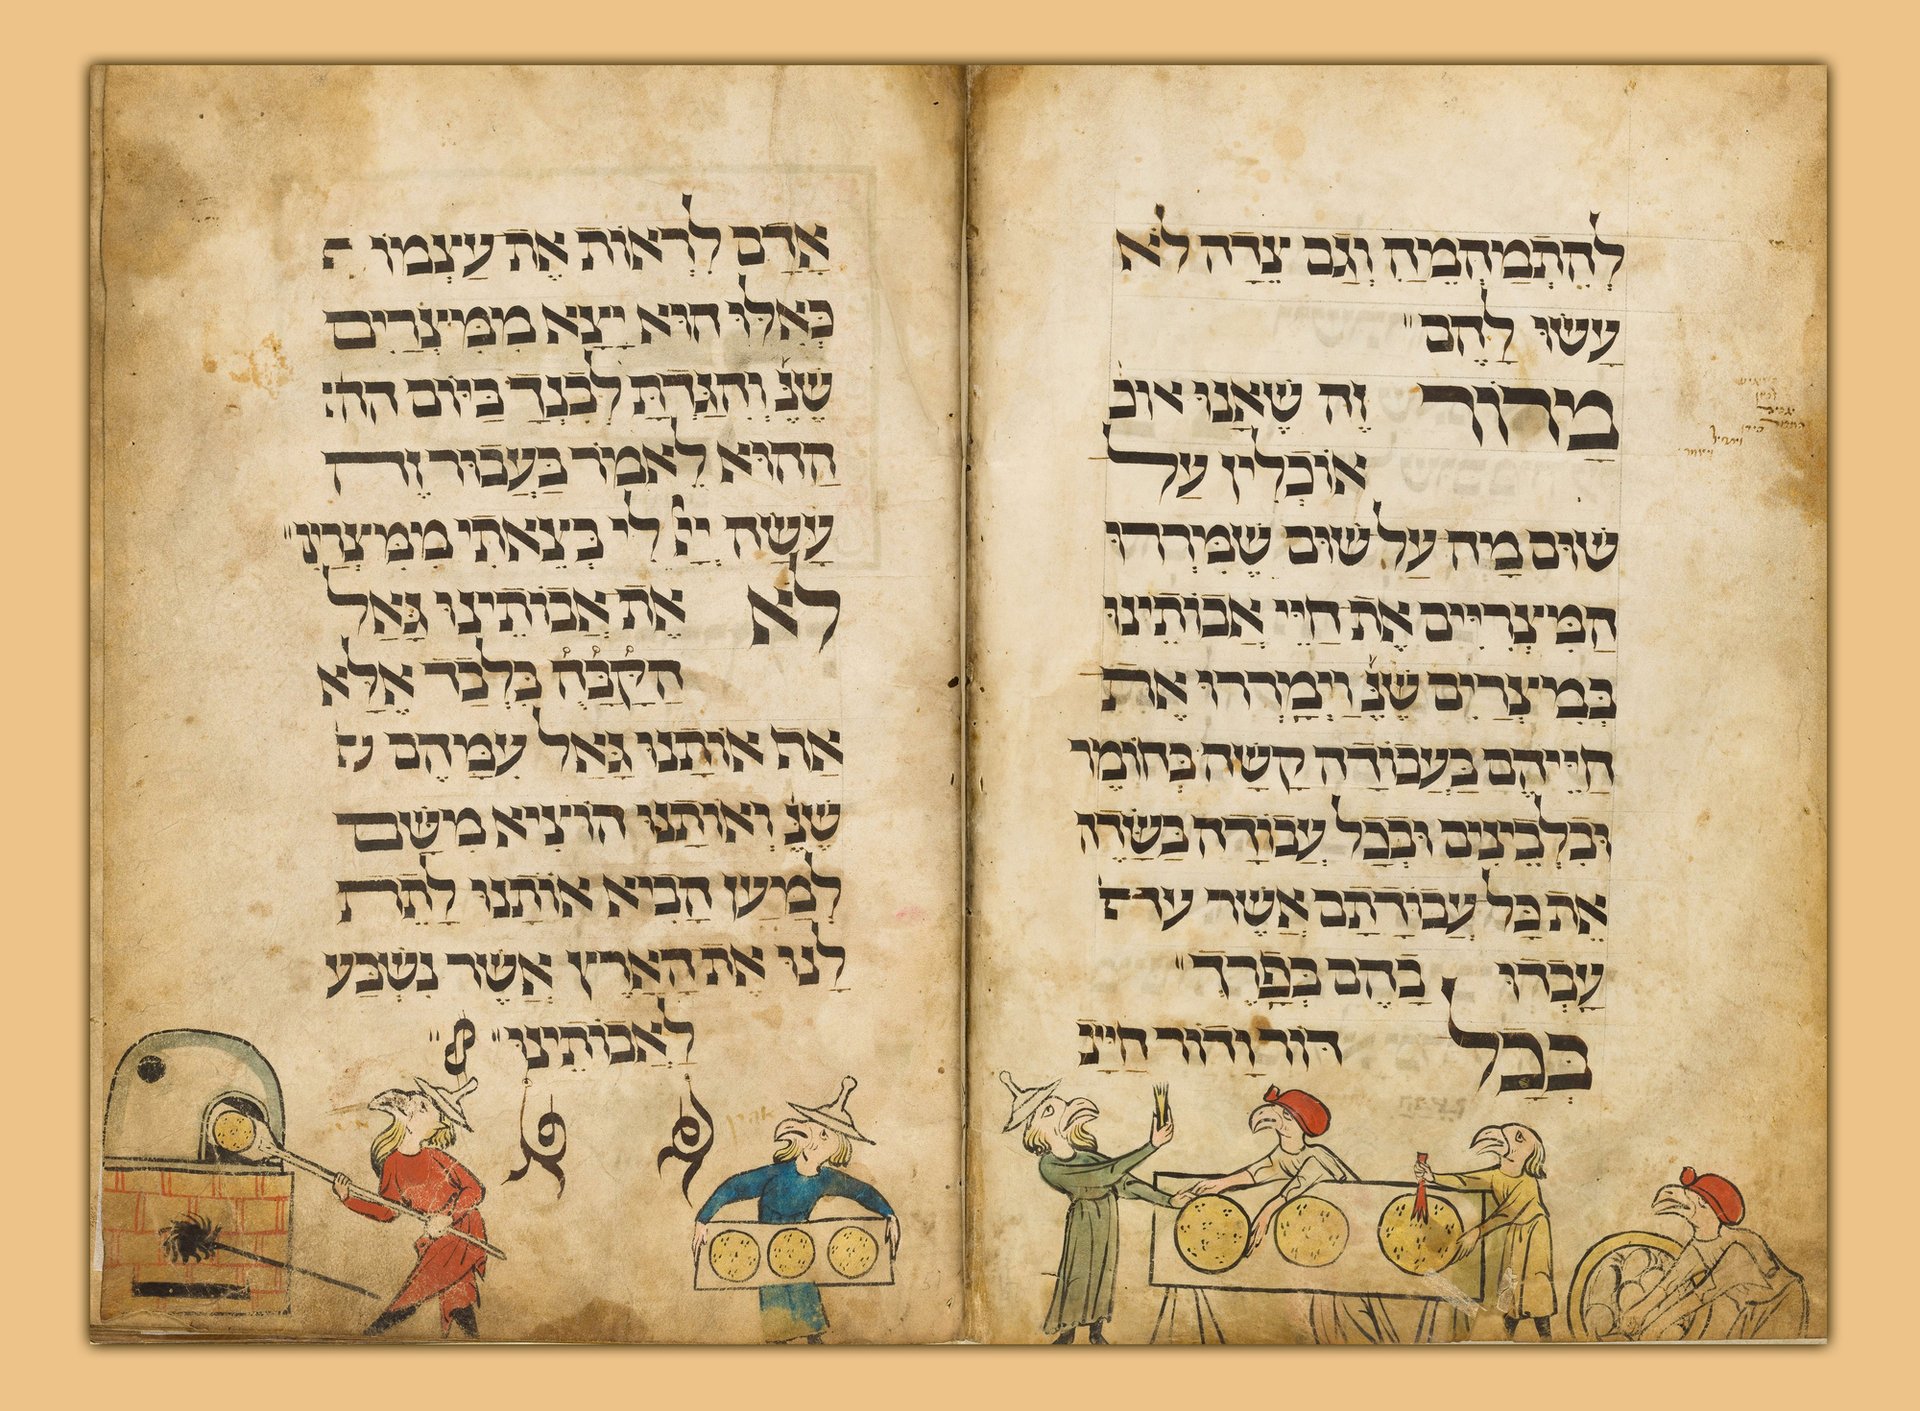 לְהִתְמַהְמֵהַּ וְגַם צֵדָה לֹא
עָשׂוּ לָהֶם״
מָרוֹר זֶה שֶׁאָנוּ אוכ
אוֹכְלִין עַל
שׁוּם מָה עַל שׁוּם שֶׁמֵּרְרוּ
הַמִּצְרִיִּים אֶת חַיֵּי אֲבוֹתֵינוּ
בְּמִצְרַיִם שֶׁנֶּ וַיְמָרְרוּ אֶת
חַיֵּיהֶם בַּעֲבוֹדָה קָשָׁה בְּחוֹמֶר
וּבִלְבֵינִים וּבְכָל עֲבוֹדָה בַּשָּׂדֶה
אֵת כָּל עֲבוֹדָתָם אֲשֶׁר
עָבְדוּ בָהֶם בְּפָרֶךְ״
בְּכָל דּוֹר וָדוֹר חייב
אָדָם לִרְאוֹת אֶת עַצְמוֹ
כְּאִלּוּ הוּא יָצָא מִמִּצְרַיִם
שֶׁנֶּ וְהִגַּדְתָּ לְבִנְךָ בַּיּוֹם הה
הַהוּא לֵאמֹר בַּעֲבוּר זֶה
עָשָׂה יְיָ לִי בְּצֵאתִי מִמִּצְרַיִ״
לֹא אֶת אֲבוֹתֵינוּ גָּאַל
הַקָּבָּה בִּלְבַד אֶלָּא
אַף אוֹתָנוּ גָּאַל עִמָּהֶם
שֶׁנֶּ וְאוֹתָנוּ הוֹצִיא מִשָּׁם
לְמַעַן הָבִיא אוֹתָנוּ לָתֵת
לָנוּ אֶת הָאָרֶץ אֲשֶׁר נִשְׁבַּע
לַאֲבוֹתֵינוּ״